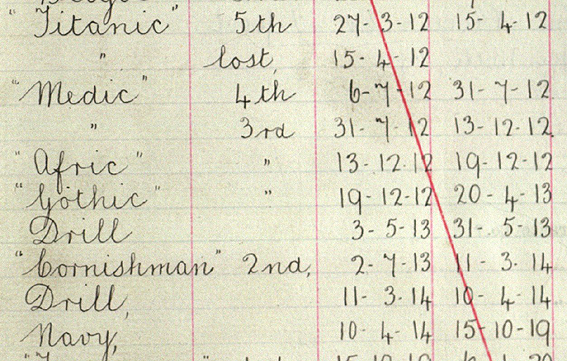 "Titanic" 5th 27- 3-12 15- 4-12
" lost, 15- 4-12
"Medic" 4th 6-7-12 31-7-12
" 3rd 31-7-12 13-12-12
"Afric" " 13-12-12 19-12-12
"Gothic" " 19-12-12 20-4-13
Drill 3-5-13 31-5-13
"Cornishman" 2nd, 2-7-13 11-3-14
Drill, 11-3-14 10-4-14
Navy, 10-4-14 15-10-19